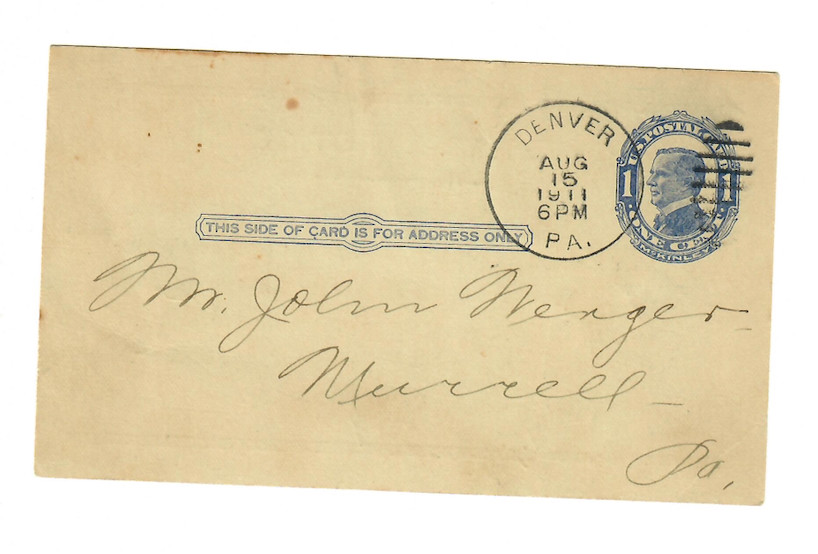 DENVER
AUG
15
1911
6PM
PA.
U.S. POSTAL CARD
1 1
ONE CENT
McKINLEY
THIS SIDE OF CARD IS FOR ADDRESS ONLY
Mr. John Wenger
Murrell
Pa.